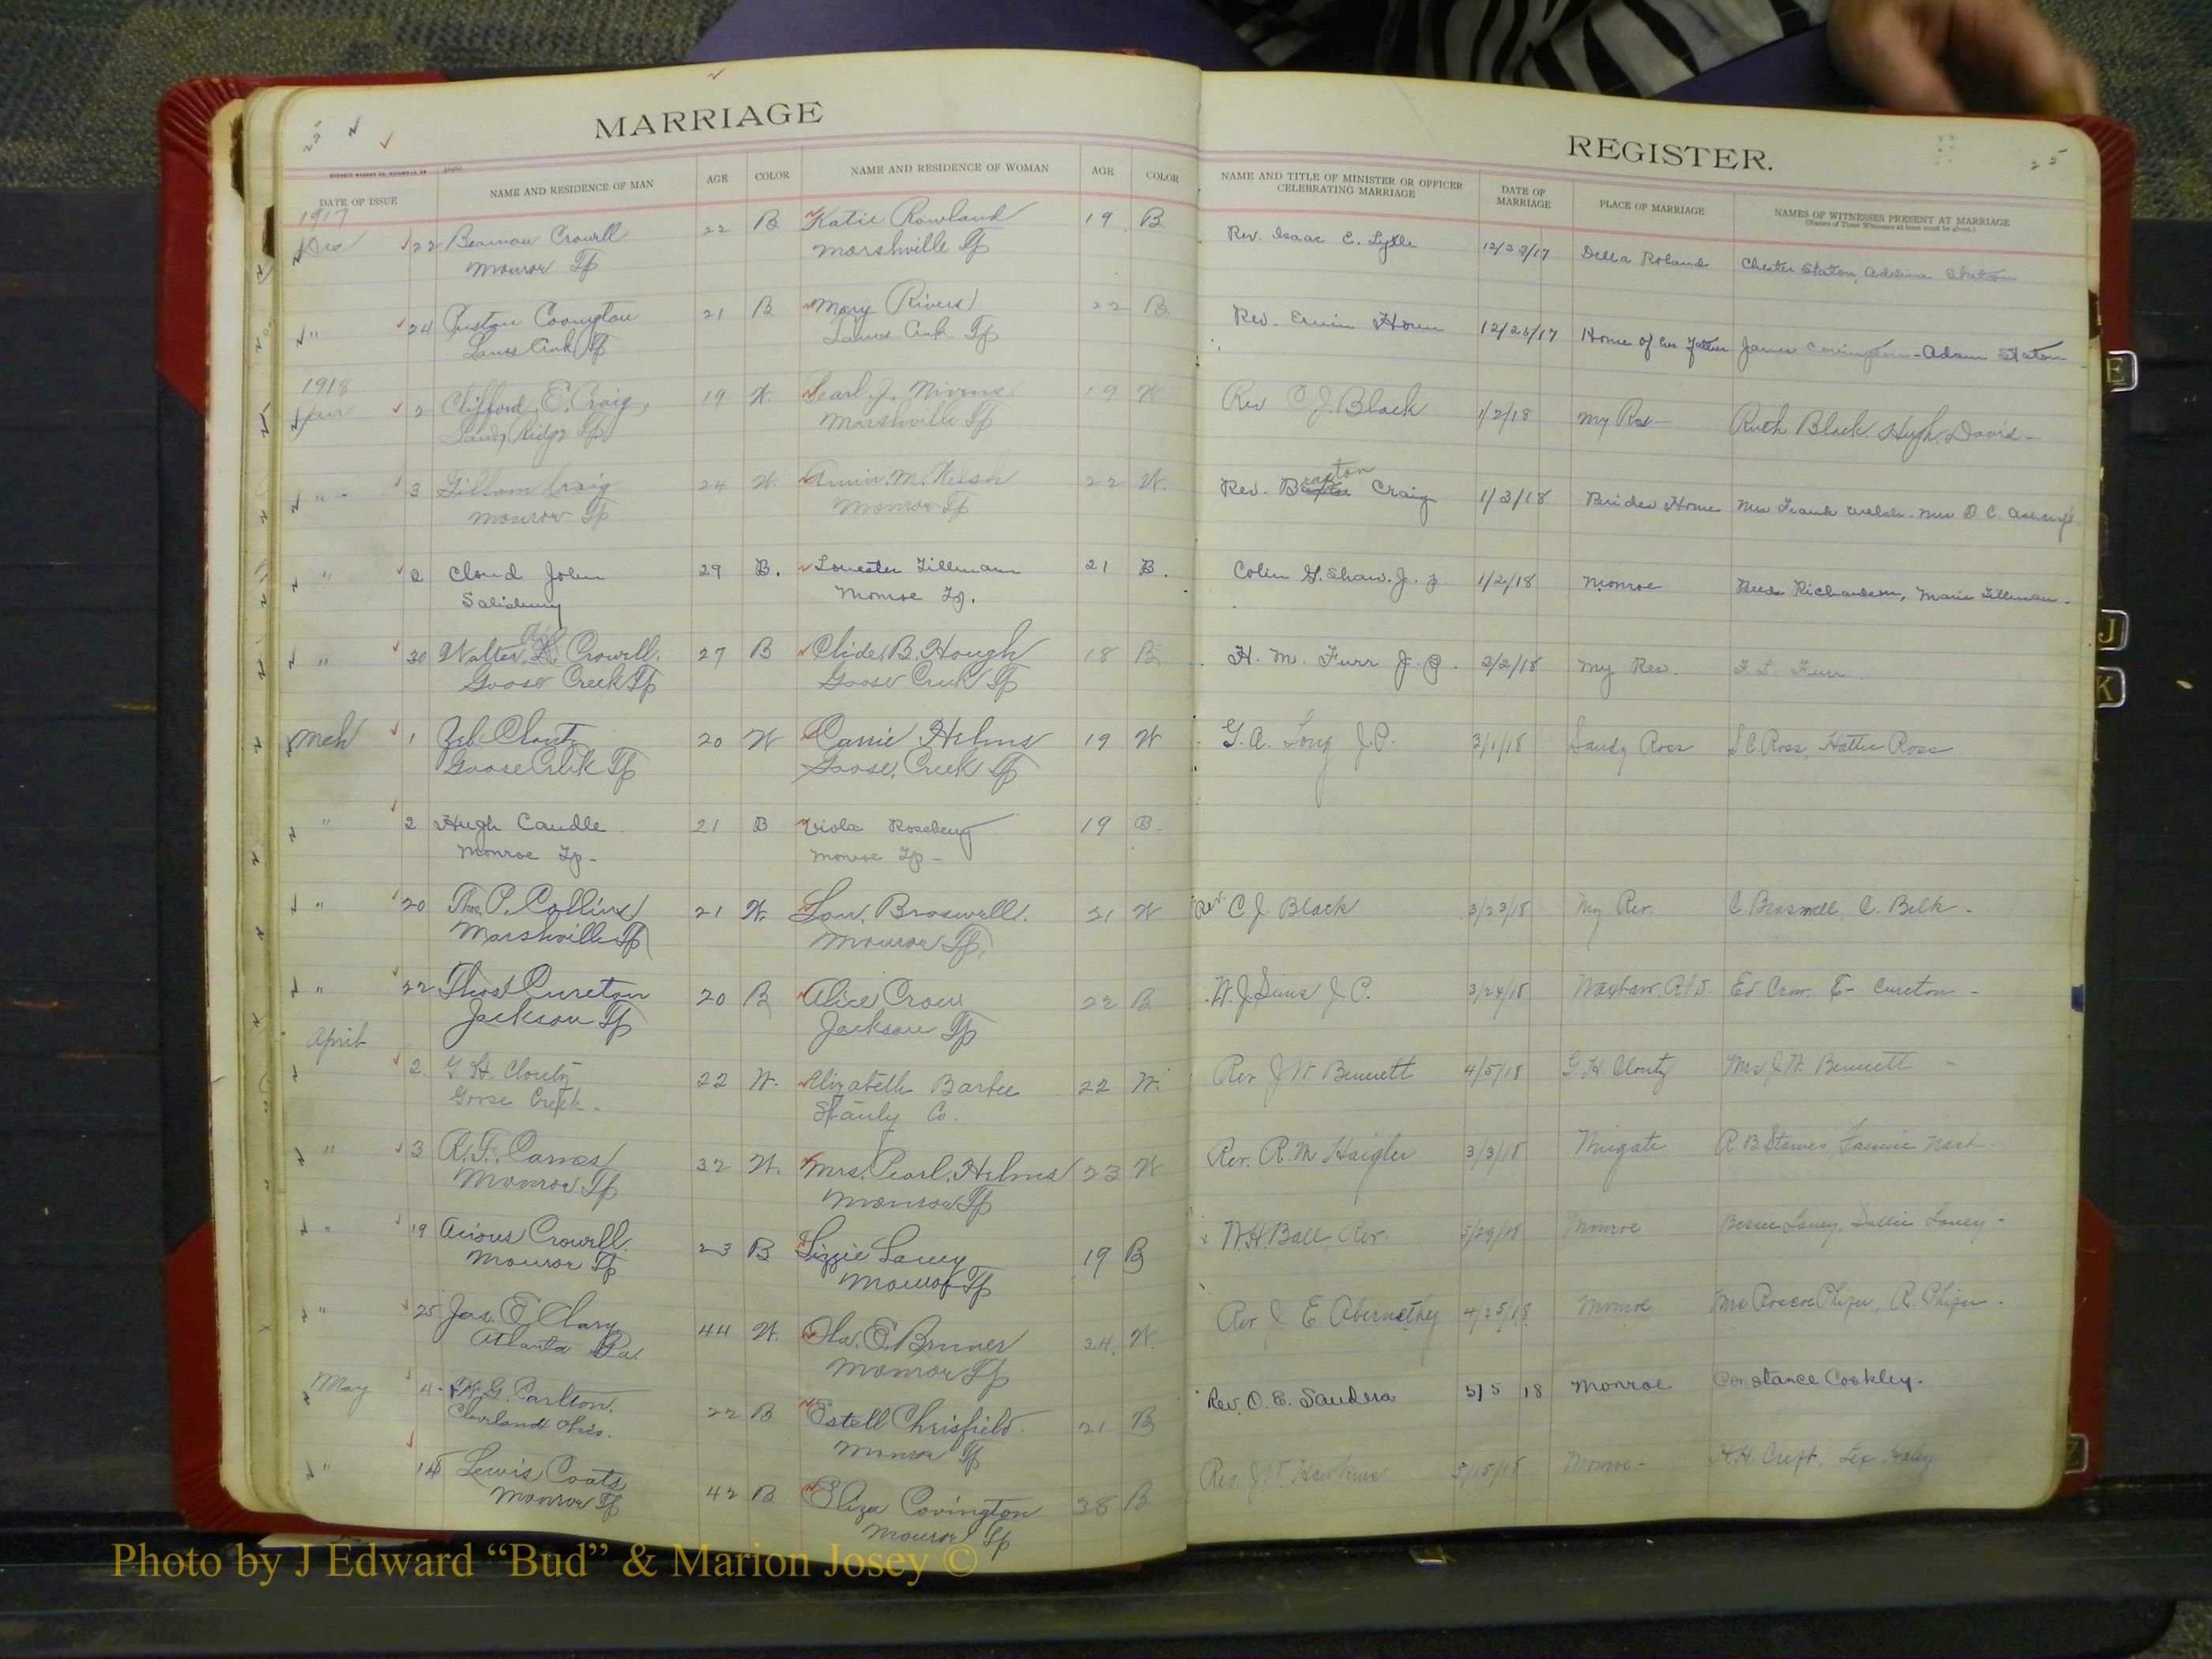 MARRIAGE
REGISTER.
25
DATE OF ISSUE
NAME AND RESIDENCE OF MAN
AGE
COLOR
NAME AND RESIDENCE OF WOMAN
AGE
COLOR
NAME AND TITLE OF MINISTER OR OFFICER
CELEBRATING MARRIAGE
DATE OF
MARRIAGE
PLACE OF MARRIAGE
NAMES OF WITNESSES PRESENT AT MARRIAGE
(Names of Three Witnesses at least must be given.)
1917
Dec 22 Beaman Crowell 22 B Katie Rowland 19 B Rev. Isaac C. Lytle 12/23/17 Della Roland Chester Staton, Addina Staton
Monroe Tp Marshville Tp
" 24 Covington 21 B Mary Rivers 22 B Rev. Home of her Father James Covington - Adam Staton
Lanes Creek Tp Lanes Creek Tp
1918
Jan 2 Clifford E. Craig 19 W. Pearl J. 19 W Rev C J. Black 1/2/18 My Res- Ruth Black Hugh David-
Sandy Ridge Tp Marshville Tp
" 3 Gillam Craig 24 W. Annie M. Welsh 22 W. Rev. Braxton Craig 1/3/18 Brides Home Mrs Frank Welsh. Mrs B. C. Ashcraft
Monroe Tp Monroe Tp
" 2 Cloud John 29 B. Louester Tillmann 21 B. Colin G. Shaw. J. P. 1/2/18 Monroe Richardson, Marie Tillman.
Salisbury Monroe Tp.
" 30 Walter Crowell. 27 B Clide B. Hough 18 B H. M. Furr J. P. 2/2/18 My Res. F. L. Furr
Goose Creek Tp Goose Creek Tp
Mch 1 Zeb Clontz 20 W Carrie Helms 19 W G. A. Long J.P. 3/1/18 Sandy Ross S C Ross, Hattie Ross
Goose Creek Tp Goose Creek Tp
" 2 Hugh Caudle 21 B Viola Roseberry 19 B.
Monroe Tp- Monroe Tp-
" 20 Thos. P. Collins 21 W. Lou Braswell. 21 W Rev. C J. Black 3/23/18 My Res. C. Braswell, C. Belk-
Marshville Tp Monroe Tp.
" 22 Thos Cureton 20 B Alice Crow 22 B W. J. Sims J P. 3/24/18 Waxhaw. Ed Crow. E- Cureton-
Jackson Tp Jackson Tp
April
2. G. H. Clontz 22 W. Elizabeth Barbee 22 W. Rev J. W. Bennett 4/5/18 G H Clontz Mrs J. W. Bennett-
Goose Creek- Stanly Co.
" 3 R. F. Carnes 32 W. Mrs. Pearl Helms 23 W Rev. R. M Haigler 3/3/18 Wingate R B Starnes, Fannie Nash
Monroe Tp Monroe Tp
" 19 Crowell. 23 B Lizzie Laney 19 B W. H. Ball, Rev. 5/29/18 Monroe Bessie Laney, Dollie Laney-
Monroe Tp Monroe Tp
" 25 Jas. E. Clary 44 W. Ola E. Bruner 24. W. Rev J E Abernethy 4/25/18 Monroe Mrs Roscoe Phifer, R. Phifer.
Atlanta Ga. Monroe Tp
May 4- G. Carlton. 22 B Estell Chrisfield 21 B Rev. O. E. Sanders 5/5 18 Monroe Constance Cookley.
Cleveland Ohio. Monroe Tp
" Lewis Coats 42 B Eliza Covington 38 B Rev. J W. Hawkins 5/15/18 Monroe- H. H.
Monroe Tp Monroe Tp
E
J
K
Photo by J Edward “Bud” & Marion Josey ©